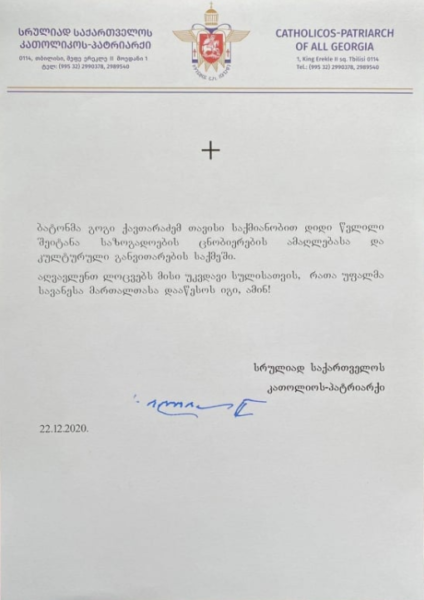 სრულიად საქართველოს
კათოლიკოს-პატრიარქი
0114, თბილისი, მეფე ერეკლე II მოედანი 1
ტელ: (995 32) 2990378, 2989540
CATHOLICOS-PATRIARCH
OF ALL GEORGIA
1, King Erekle II sq. Tbilisi 0114
Tel.: (995 32) 2990378, 2989540
ბატონმა გოგი ქავთარაძემ თავისი საქმიანობით დიდი წვლილი
შეიტანა საზოგადოების ცნობიერების ამაღლებასა და
კულტურული განვითარების საქმეში.
აღვავლენთ ლოცვებს მისი უკვდავი სულისათვის, რათა უფალმა
სავანესა მართალთასა დააწესოს იგი, ამინ!
სრულიად საქართველოს
კათოლიოს-პატრიარქი
22.12.2020.